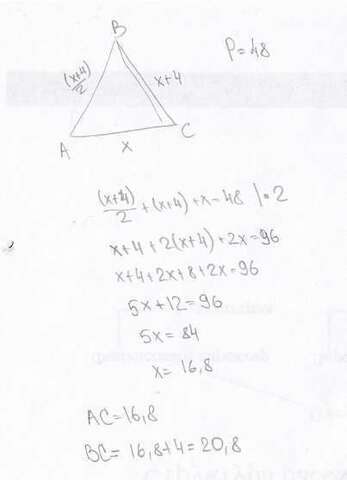 B
P=48
(x+4)/2
x+4
A
x
C
(x+4)/2 + (x+4) + x = 48 |·2
x+4+2(x+4)+2x=96
x+4+2x+8+2x=96
5x+12=96
5x=84
x=16,8
AC=16,8
BC= 16,8+4=20,8